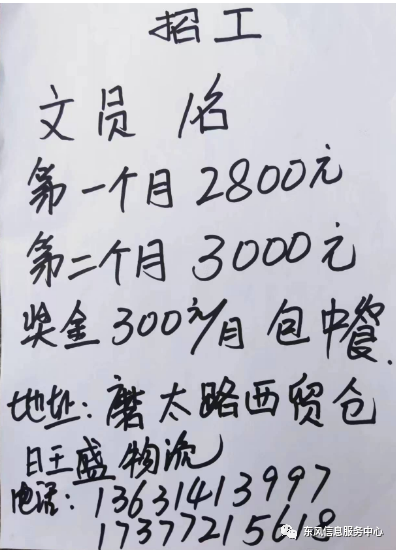 招工
文员 1名
第一个月 2800元
第二个月 3000元
奖金 300元/月 包中餐.
地址: 磨太路西贸仓
旺盛物流
电话: 13631413997
17377215618
东风信息服务中心